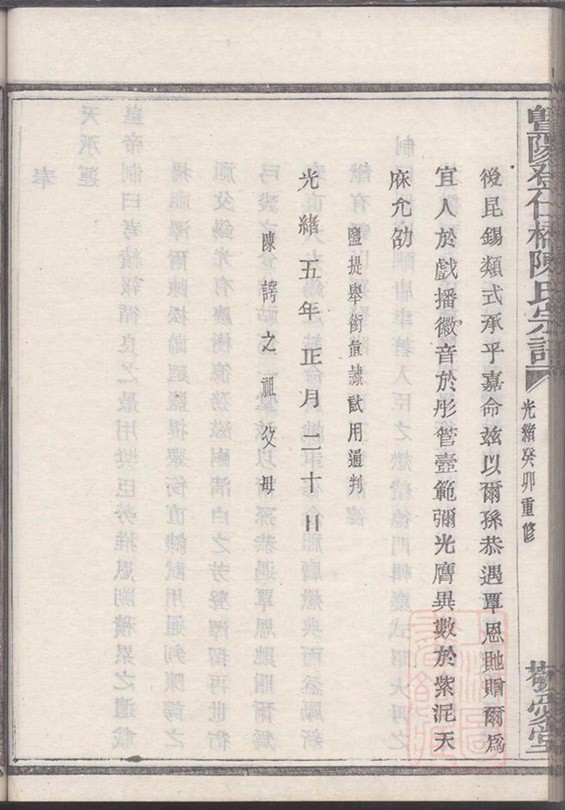 暨陽登仕橋陳氏宗譜
光緒癸卯重修
敬愛堂
後昆錫類式承乎嘉命玆以爾孫恭遇覃恩貤贈爾爲
宜人於戲播徽音於彤管壼範彌光膺異數於紫泥天
庥允劭
鹽提舉銜直隸試用通判
光緒五年正月二十日
陳諤之祖父母